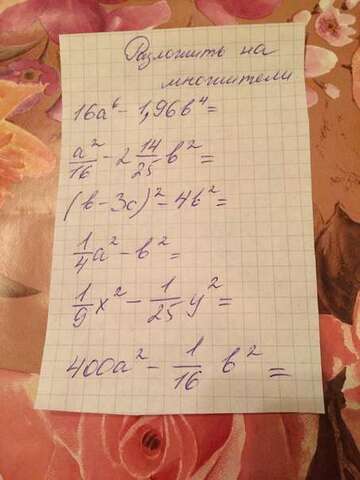 Разложить на
множители
16a⁶ - 1,96b⁴ =
a²/16 - 2 14/25 b² =
(b - 3c)² - 4b² =
1/4 a² - b² =
1/9 x² - 1/25 y² =
400a² - 1/16 b² =